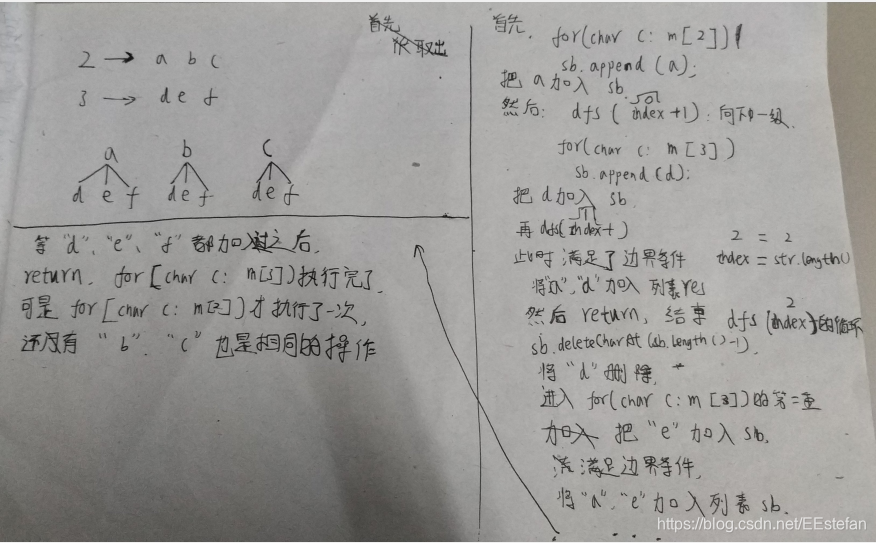 首先
取出
2 → a b c
3 → d e f
a b c
d e f d e f d e f
等"d"、"e"、"f"都加入过之后,
return, for [char c: m[3])执行完了,
可是 for [char c: m[2])才执行了一次,
还没有"b"、"c"也是相同的操作
首先, for(char c: m[2])
sb.append(a);
把 a 加入 sb.
然后: dfs(index+1): 向下一级.
0
for(char c: m[3])
sb.append(d);
把 d 加入 sb.
再 dfs(index+
1
此时 满足了边界条件 index = str.length()
2 = 2
将"a","d"加入 列表res
然后 return, 结束 dfs(index)的循环
2
sb.deleteCharAt(sb.length()-1),
将"d"删除,
进入 for(char c: m[3])的第二
加入 把"e"加入 sb,
满足边界条件,
将"a","e"加入列表 sb.
......
https://blog.csdn.net/EEstefan